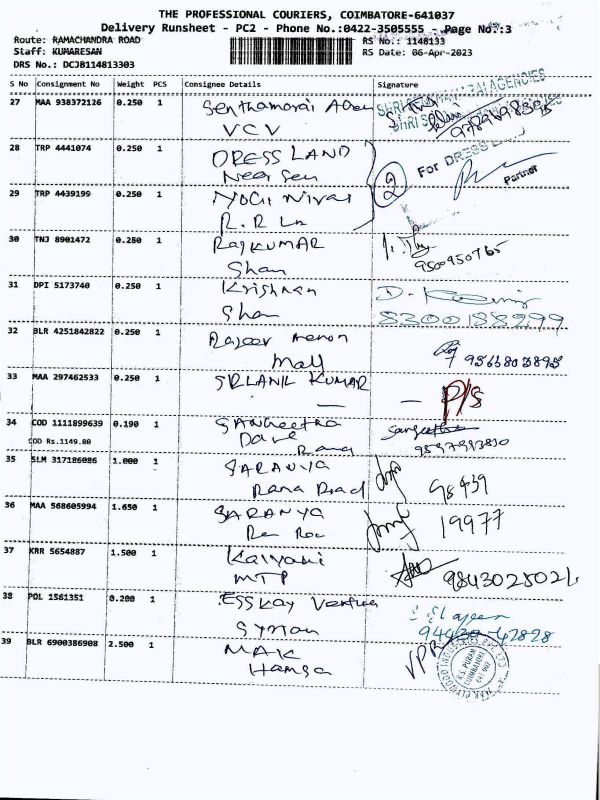 THE PROFESSIONAL COURIERS, COIMBATORE-641037
Delivery Runsheet - PC2 - Phone No.:0422-3505555 - Page No.:3
Route: RAMACHANDRA ROAD RS No.: 1148133
Staff: KUMARESAN RS Date: 06-Apr-2023
DRS No.: DCJB114813303
S No Consignment No Weight PCS Consignee Details Signature
27 MAA 938372126 0.250 1 Senthamarai
VCV
28 TRP 4441074 0.250 1 DRESS LAND
Near Sen
For DRESS
Partner
2
29 TRP 4439199 0.250 1
R.R Ln
30 TNJ 8901472 0.250 1 RAJKUMAR
Shan
9500950765
31 DPI 5173740 0.250 1 Krishnan
Shan
8300188299
32 BLR 4251842822 0.250 1 Rajeev menon
Mall
9566803895
33 MAA 297462533 0.250 1 KUMAR
— — P/S
34 COD 1111899639 0.190 1 SANGeetha Sangeetha
COD Rs.1149.00
Rang
35 SLM 317186086 1.000 1 SARANYA
Rama Road 98439
36 MAA 568605994 1.650 1 SARANYA
19977
37 KRR 5654887 1.500 1 Kalyani
MTP 9843025021
38 POL 1561351 0.200 1 ESSKAY Venture
94430-42828
39 BLR 6900386908 2.500 1 MAK
Hamsa
VPR
R.S. PURAM
COIMBATORE
641 002